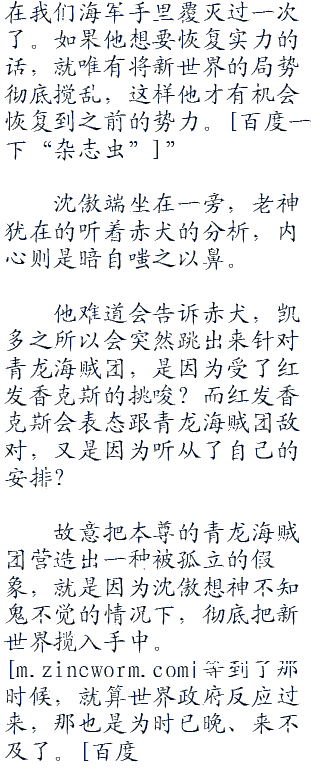 在我们海军手里覆灭过一次
了。如果他想要恢复实力的
话，就唯有将新世界的局势
彻底搅乱，这样他才有机会
恢复到之前的势力。[百度一
下“杂志虫”]”
沈傲端坐在一旁，老神
犹在的听着赤犬的分析，内
心则是暗自嗤之以鼻。
他难道会告诉赤犬，凯
多之所以会突然跳出来针对
青龙海贼团，是因为受了红
发香克斯的挑唆？而红发香
克斯会表态跟青龙海贼团敌
对，又是因为听从了自己的
安排？
故意把本尊的青龙海贼
团营造出一种被孤立的假
象，就是因为沈傲想神不知
鬼不觉的情况下，彻底把新
世界揽入手中。
[m.zincworm.com]等到了那
时候，就算世界政府反应过
来，那也是为时已晚、来不
及了。[百度